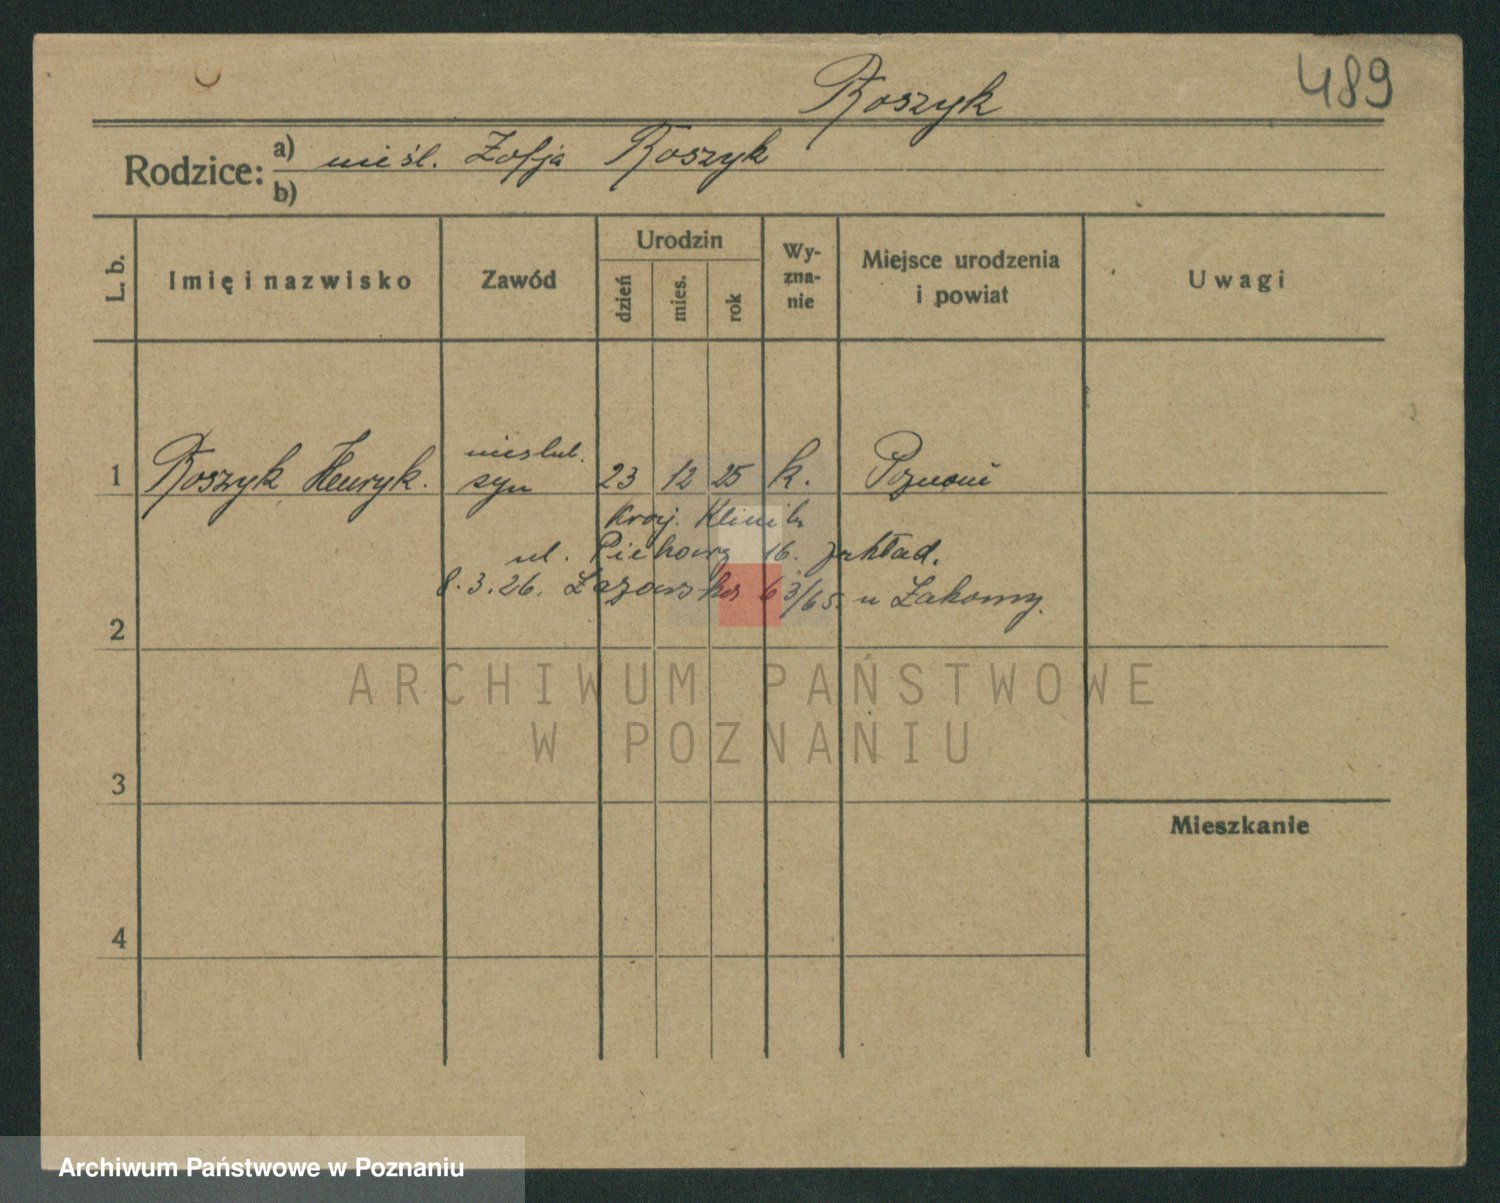 Roszyk
489
Rodzice: a) nieśl. Zofja Roszyk
b)
L. b.
Imię i nazwisko
Zawód
Urodzin
dzień
mies.
rok
Wy-
zna-
nie
Miejsce urodzenia
i powiat
Uwagi
1 Roszyk Henryk. nieślub. syn 23 12 25 k. Poznań
Kraj. Klinik
ul. 16. zakład.
8.3.26. Łazarska 63/65. u Łakomy.
2
3
4
Mieszkanie
ARCHIWUM PAŃSTWOWE
W POZNANIU
Archiwum Państwowe w Poznaniu